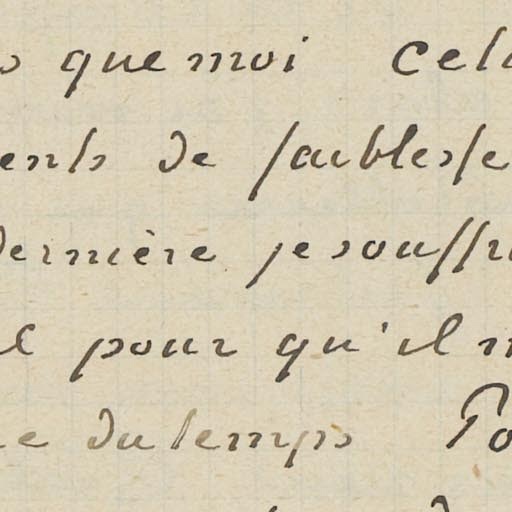 que moi cela
ents de faiblesse
dernière je souffri
l pour qu'il m
e du temps Po